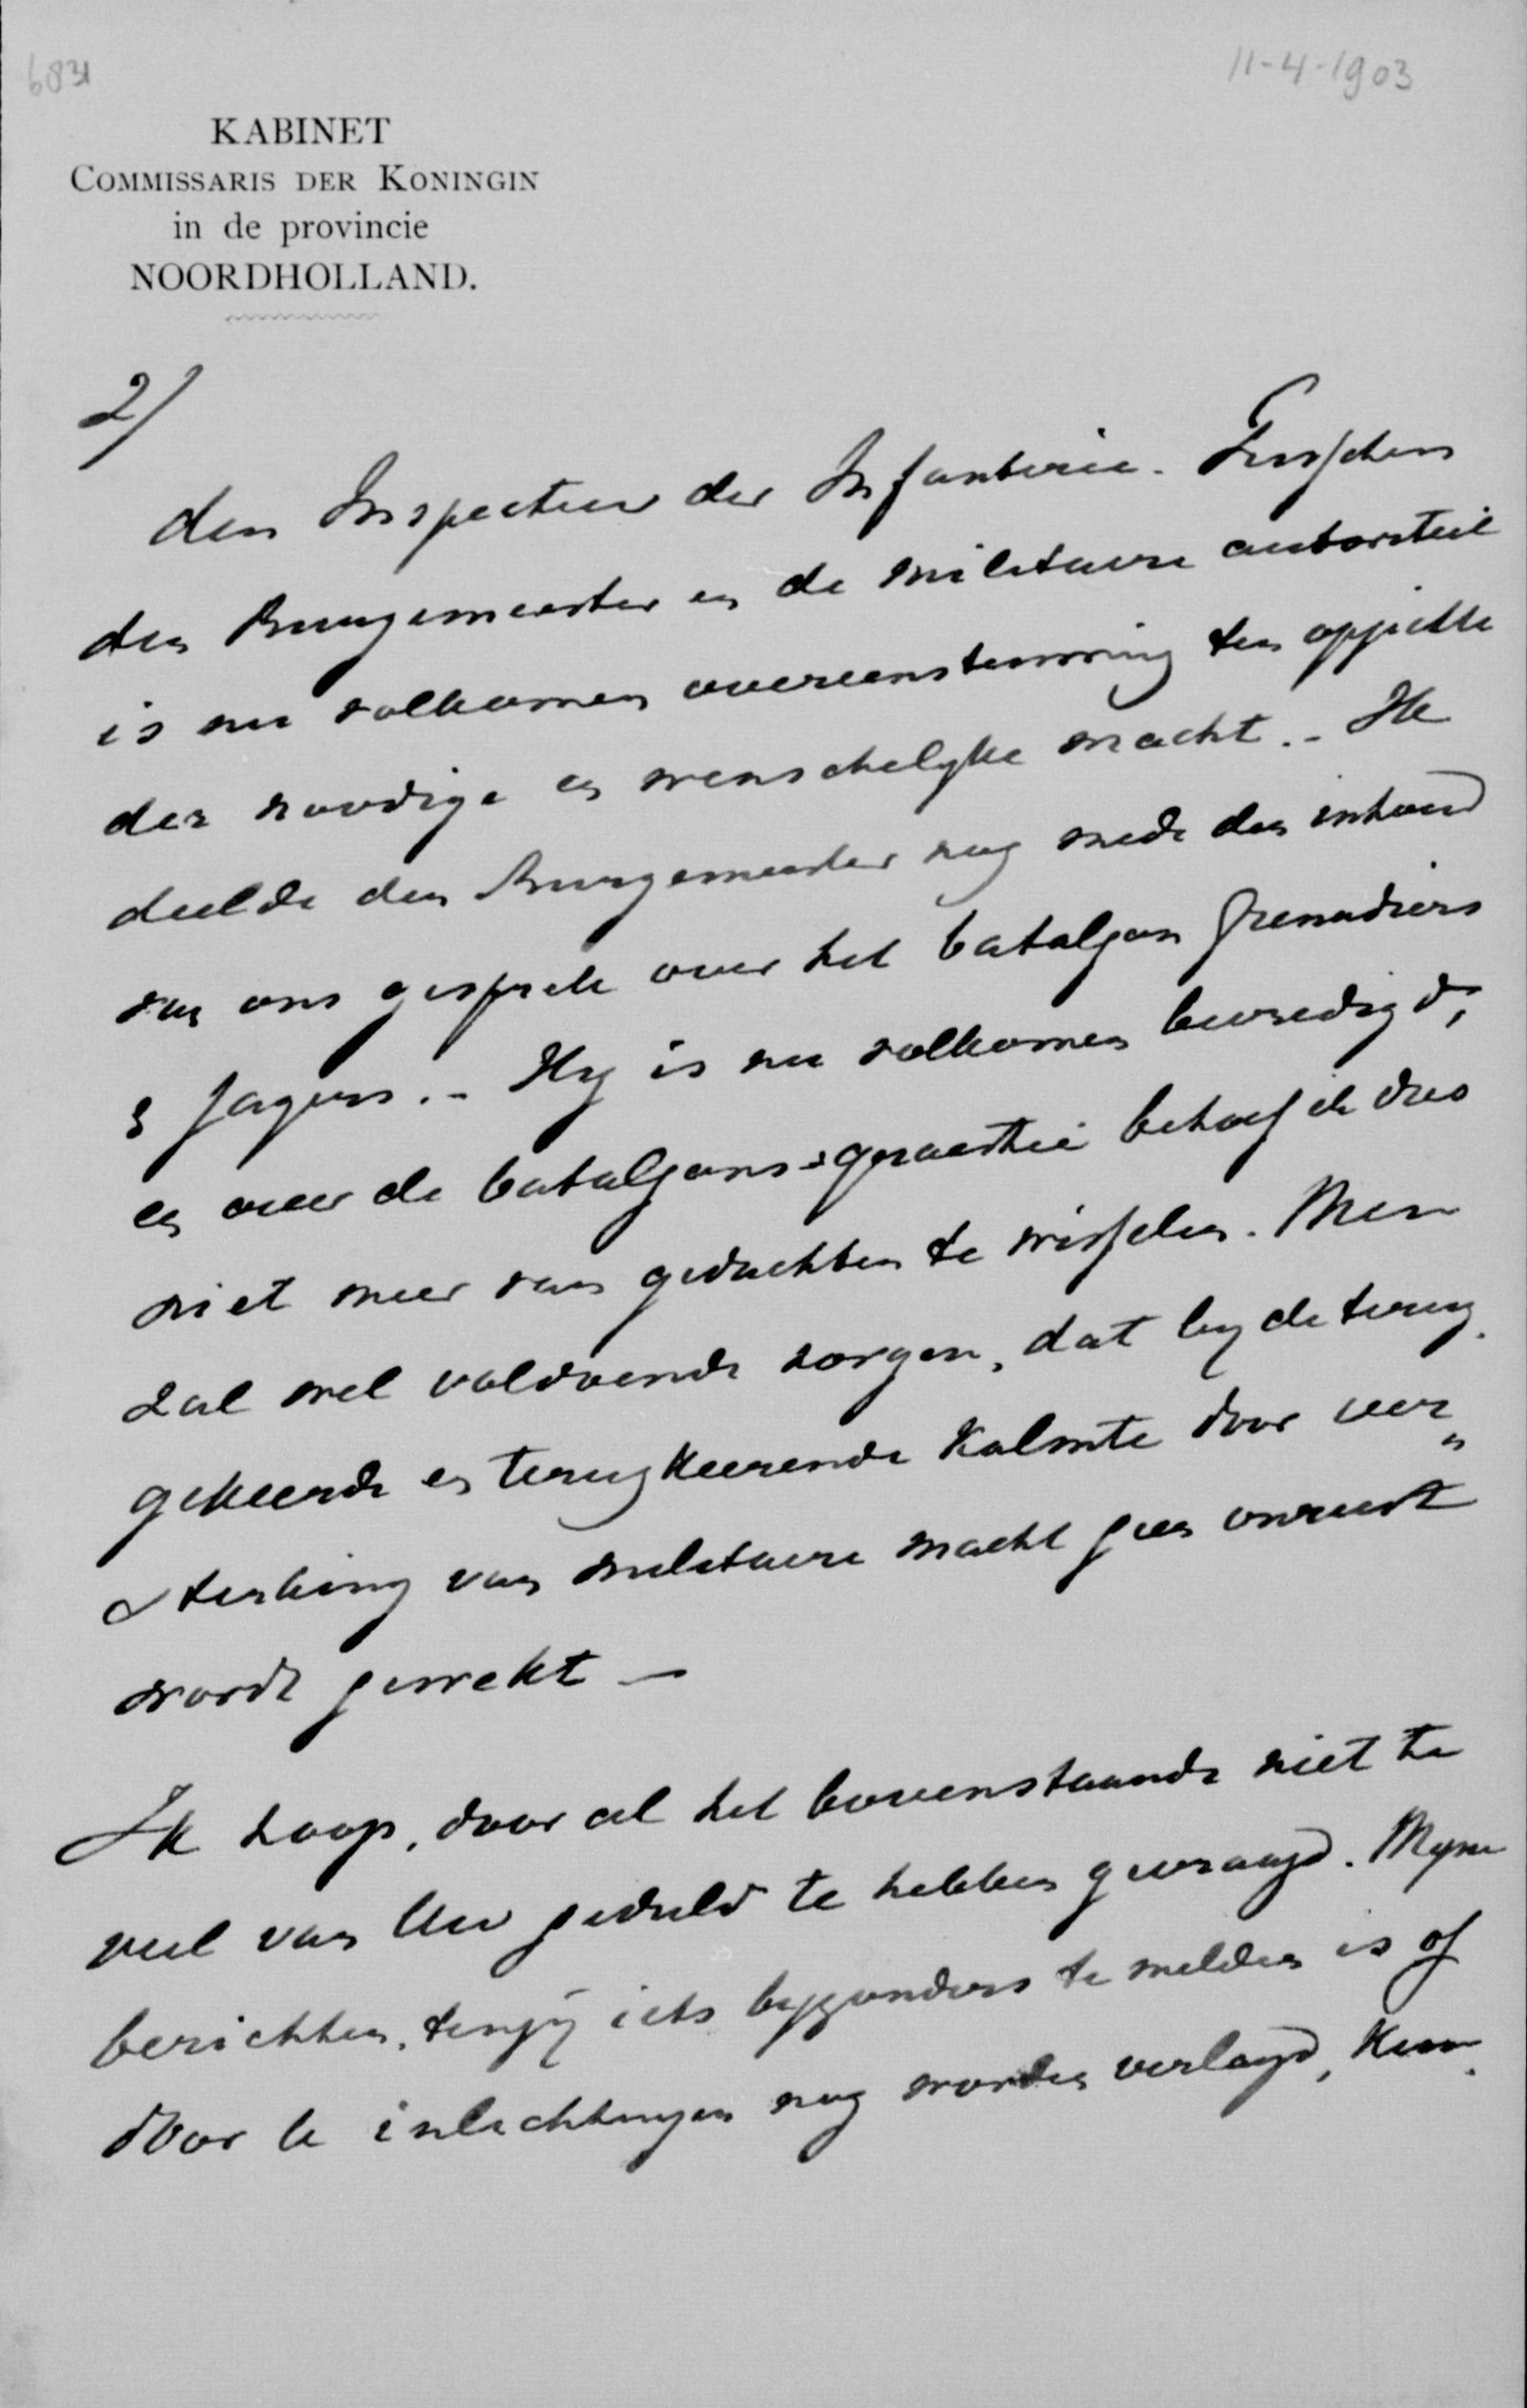 6831
11-4-1903
KABINET
COMMISSARIS DER KONINGIN
in de provincie
NOORDHOLLAND.
2/
den Inspecteur der Infanterie. Tusschen
den Burgemeester en de militaire autoriteit
is nu volkomen overeenstemming ten opzichte
der noodige en wenschelyke macht. – Ik
deelde den Burgemeester nog mede den inhoud
van ons gesprek over het bataljon Grenadiers
& Jagers. – Hy is nu volkomen bevredigd,
en over de bataljons-quaestie behoef ik dus
niet meer van gedachten te wisselen. Men
zal wel voldoende zorgen, dat by de terug-
gekeerde en terugkeerende kalmte door ver„
sterking van militaire macht geen onrust
wordt gewekt –
Ik hoop, door al het bovenstaande niet te
veel van Uw geduld te hebben gevraagd. Myne
berichten, tenzij iets byzonders te melden is of
door U inlichtingen nog worden verlangd, kun-